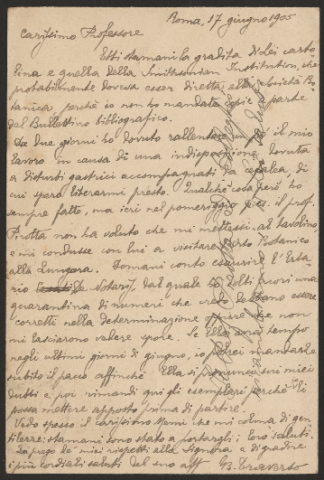 Roma, 17 giugno 1905
Carissimo Professore
Ebbi stamani la gradita di Lei carto
lina e quella della Smithsonian Institution, che
probabilmente doveva esser diretta alla Società Bo
tanica perchè io non ho mandato copie a parte
del Bullettino bibliografico.
Da due giorni ho dovuto rallentare il mio
lavoro in causa di una indisposizione dovuta
a disturbi gastrici accompagnati da cefalea, di
cui spero liberarmi presto. Qualche cosa però ho
sempre fatto, ma ieri nel pomeriggio il prof.
Pirotta non ha voluto che mi mettessi al tavolino
e mi condusse con lui a visitare l'Orto Botanico
alla Lungara. Domani conto esaurire l'Erba
rio De Notaris, dal quale ho tolti fuori una
quarantina di numeri che credo debbano essere
corretti nella determinazione oppure che non
mi lasciarono vedere spore. Se Ella avrà tempo
negli ultimi giorni di giugno, io potrei mandarle
subito il pacco affinchè Ella si pronunci sui miei
dubbi e poi rimandi qui gli esemplari perchè li
possa mettere apposto prima di partire.
Vedo spesso il carissimo che mi colma di gen
tilezze: stamani sono stato a portargli i loro saluti.
La prego dei miei rispetti alla Signora e di gradire
i più cordiali saluti del suo aff. GB. Traverso